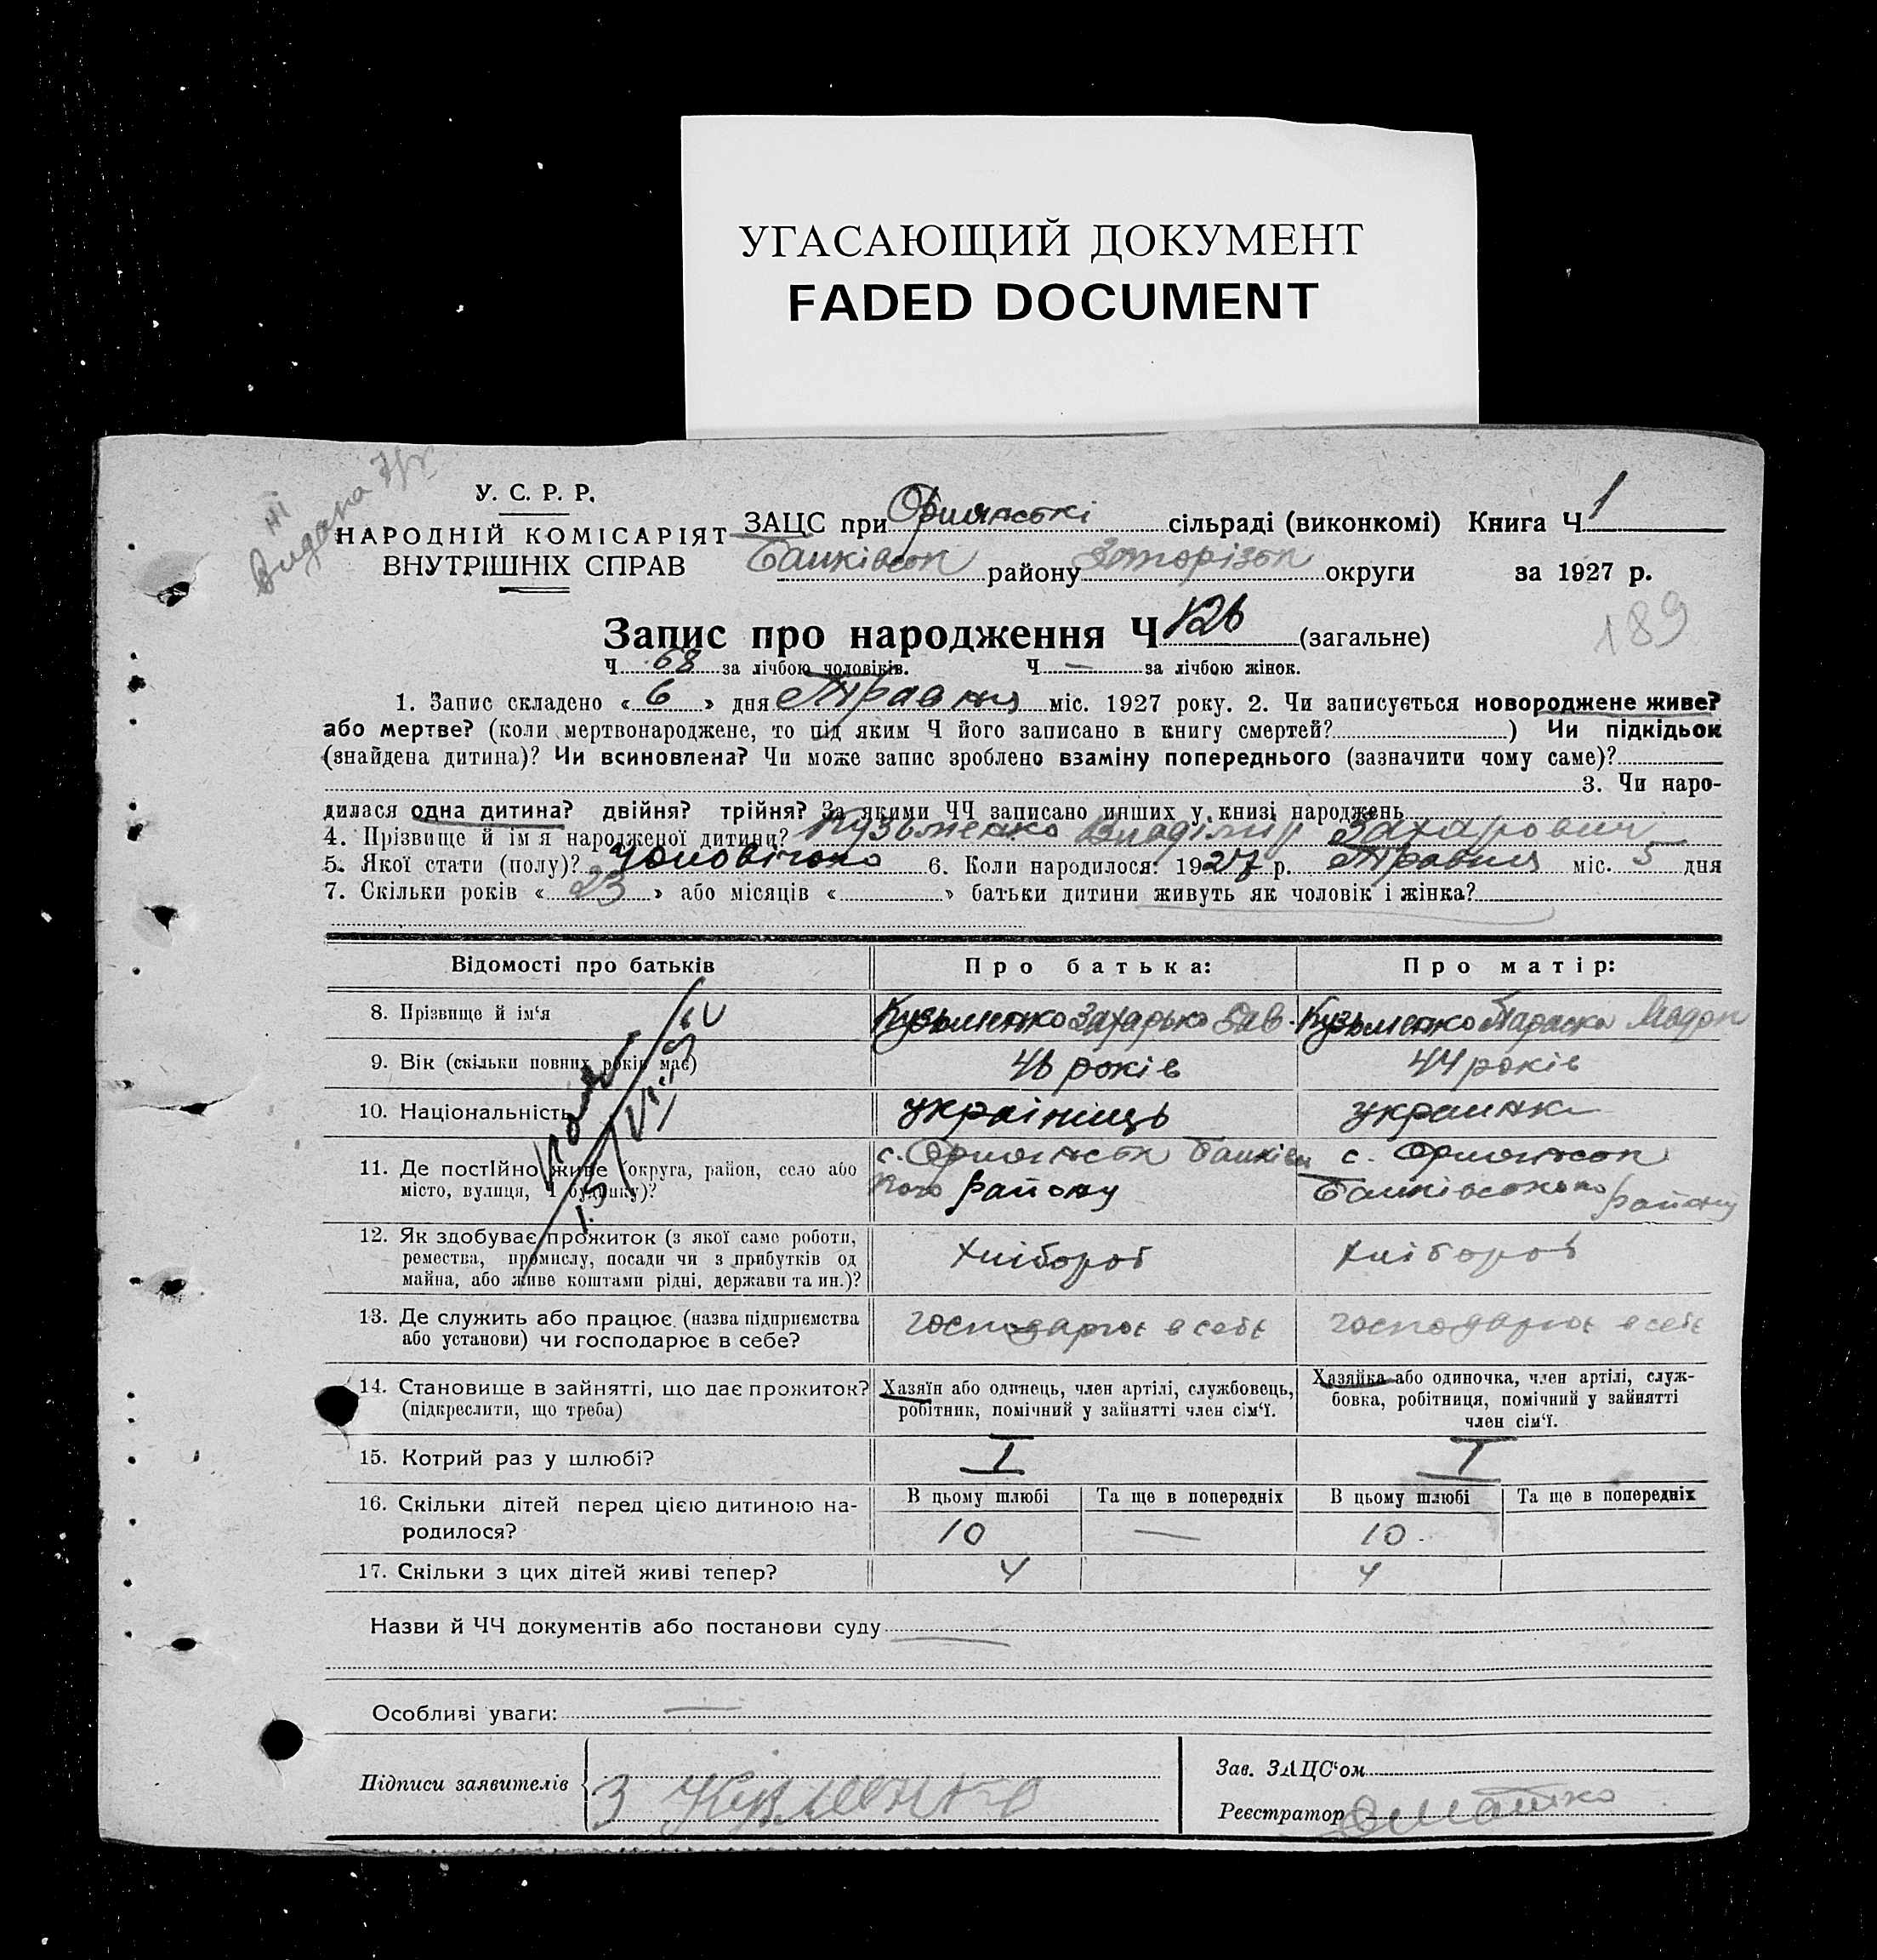 УГАСАЮЩИЙ ДОКУМЕНТ
FADED DOCUMENT
У. С. Р. Р.
НАРОДНІЙ КОМІСАРІЯТ
ВНУТРІШНІХ СПРАВ
ЗАЦС при сільраді (виконкомі) Книга Ч 1
району округи за 1927 р.
189
Запис про народження Ч 126 (загальне)
Ч 68 за лічбою чоловіків. Ч — за лічбою жінок.
1. Запис складено « 6 » дня Травня міс. 1927 року. 2. Чи записується новороджене живе?
або мертве? (коли мертвонароджене, то під яким Ч його записано в книгу смертей? ) Чи підкідьок
(знайдена дитина)? Чи всиновлена? Чи може запис зроблено взаміну попереднього (зазначити чому саме)?
3. Чи наро-
дилася одна дитина? двійня? трійня? За якими ЧЧ записано инших у книзі народжень
4. Прізвище й ім'я народженої дитини? Кузьменко Владімір Захарович
5. Якої стати (полу)? Чоловічого 6. Коли народилося: 1927 р. Травня міс. 5 дня
7. Скільки років « 23 » або місяців « » батьки дитини живуть як чоловік і жінка?
Відомості про батьків Про батька: Про матір:
8. Прізвище й ім'я Кузьменко Захарько Кузьменко Параска
9. Вік (скільки повних років має) 46 років 44 років
10. Національність українець украинка
11. Де постійно живе (округа, район, село або
місто, вулиця, і будинку)? с. району с. району
12. Як здобуває прожиток (з якої саме роботи,
ремества, промислу, посади чи з прибутків од
майна, або живе коштами рідні, держави та ин.)? Хлібороб Хлібороб
13. Де служить або працює (назва підприємства
або установи) чи господарює в себе? господарює в себе господарює в себе
14. Становище в зайнятті, що дає прожиток?
(підкреслити, що треба)
Хазяїн або одинець, член артілі, службовець,
робітник, помічний у зайнятті член сім'ї.
Хазяйка або одиночка, член артілі, служ-
бовка, робітниця, помічний у зайнятті
член сім'ї.
15. Котрий раз у шлюбі? I I
16. Скільки дітей перед цією дитиною на-
родилося?
В цьому шлюбі Та ще в попередніх В цьому шлюбі Та ще в попередніх
10 — 10
17. Скільки з цих дітей живі тепер? 4 4
Назви й ЧЧ документів або постанови суду —
Особливі уваги: —
Підписи заявителів З Кузменко
Зав. ЗАЦС'ом
Реєстратор